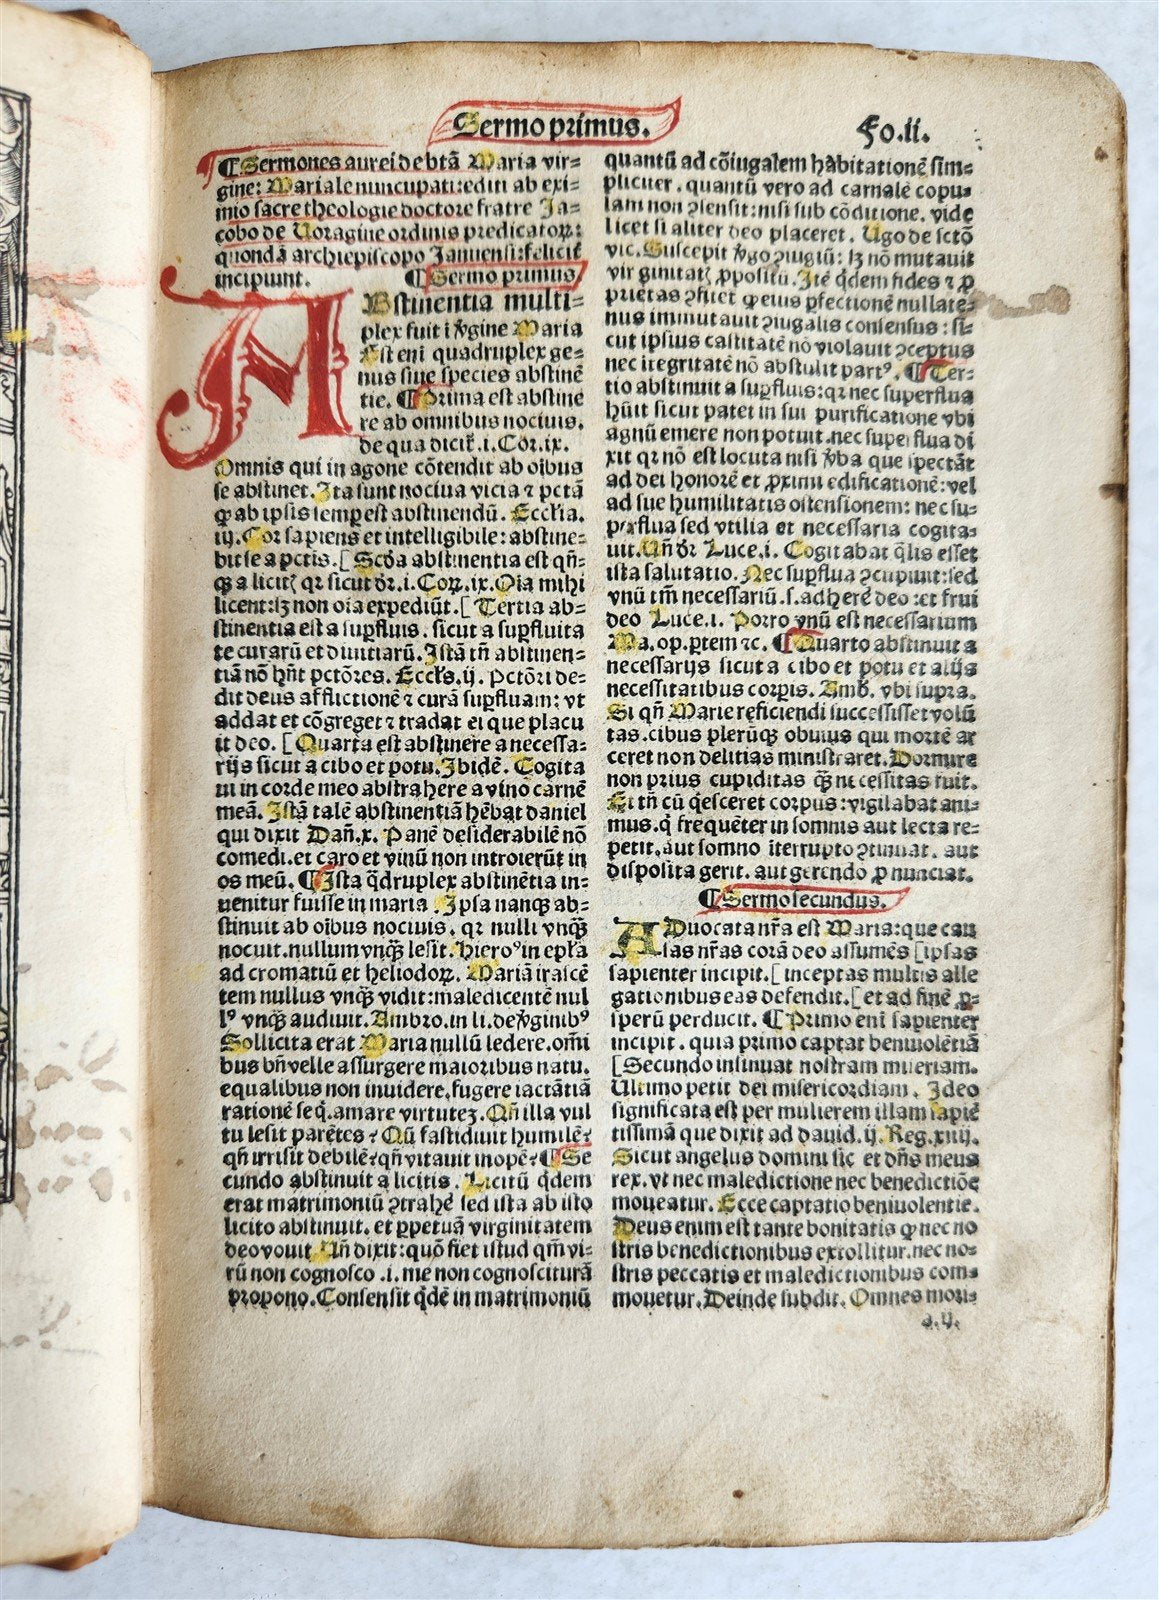 Sermo primus.
Fo.ii.
¶ Sermones aurei de btã Maria vir=
gine: Mariale nuncupati: editi ab exi=
mio sacre theologie doctore fratre Ja=
cobo de Voragine ordinis predicatoꝝ:
quondã archiepiscopo Januensi: felicit̃
incipiunt. ¶ Sermo primus
ABstinentia multi=
plex fuit ĩ ꝟgine Maria
Est enĩ quadruplex ge=
nus siue species abstinẽ
tie. ¶ Prima est abstine
re ab omnibus nociuis.
de qua dicit̃. i. Cor. ix.
Omnis qui in agone cõtendit ab oĩbus
se abstinet. Ita sunt nociua vicia ⁊ pctã
ꝙ ab ipsis semꝑ est abstinendũ. Eccl̃ia.
iij. Cor sapiens et intelligibile: abstine=
bit se a pctis. [ Scd̃a abstinentia est qñ=
qꝫ a licit̃ꝭ qꝛ sicut dr̃. i. Coꝝ. ix. Oĩa mihi
licent: lꝫ non oĩa expediũt. [ Tertia ab=
stinentia est a suꝑfluis. sicut a suꝑfluita
te curarũ et diuitiarũ. Istã tñ abstinen=
tiã nõ hñt pctõres. Eccl̃s. ij. Pctõri de=
dit deus afflictionẽ ⁊ curã suꝑfluam: vt
addat et cõgreget ⁊ tradat ei que placu
it deo. [ Quarta est abstinere a necessa=
rijs sicut a cibo et potu. Ibidẽ. Cogita
ui in corde meo abstrahere a vino carnẽ
meã. Istã talẽ abstinentiã hẽbat daniel
qui dixit Dañ. x. Panẽ desiderabilẽ nõ
comedi. et caro et vinũ non introierũt in
os meũ. ¶ Ista q̃druplex abstinẽtia in=
uenitur fuisse in maria. Ipsa nanqꝫ ab=
stinuit ab oĩbus nociuis. qꝛ nulli vnqꝫ̃
nocuit. nullum vnqꝫ̃ lesit. Hieroꝰ in epl̃a
ad cromatiũ et heliodoꝝ. Mariã irascẽ
tem nullus vnqꝫ̃ vidit: maledicentẽ nul
lꝰ vnqꝫ̃ audiuit. Ambro. in li. de ꝟginibꝰ
Sollicita erat Maria nullũ ledere. om̃i
bus bñ velle assurgere maioribus natu.
equalibus non inuidere, fugere iactãtiã
rationẽ seq̃. amare virtuteꝫ. Qñ illa vul
tu lesit parẽtes? Qñ fastidiuit humilẽ?
qñ irrisit debilẽ? qñ vitauit inopẽ? ¶ Se
cundo abstinuit a licitis. Licitũ q̃dem
erat matrimoniũ ꝯtrahẽ sed ista ab isto
licito abstinuit. et ꝑpetuã virginitatem
deo vouit. Uñ dixit: quõ fiet istud qm̃ vi=
rũ non cognosco. i. me non cognosciturã
propono. Consensit q̃dẽ in matrimoniũ
quantũ ad cõiugalem habitationẽ sim=
pliciter. quantũ vero ad carnalẽ copu=
lam non ꝯsensit: nisi sub cõditione. vide
licet si aliter deo placeret. Ugo de sctõ
vic. Suscepit ꝟgo ꝯiugiũ: lꝫ nõ mutauit
virginitatꝭ ꝓpositũ. Itẽ q̃dem fides ⁊ ꝓ
prietas ꝯstitet ꝙ eius ꝑfectionẽ nullate=
nus imminutauit ꝯiugalis consensus: si=
cut ipsius castitatẽ nõ violauit ꝯceptus
nec ĩtegritatẽ nõ abstulit partꝰ. ¶ Ter=
tio abstinuit a suꝑfluis: qꝛ nec superflua
hũit sicut patet in sui purificatione vbi
agnũ emere non potuit. nec superflua di
xit qꝛ nõ est locuta nisi ꝟba que spectãt
ad dei honorẽ et ꝓximi edificationẽ: vel
ad sue humilitatis ostensionem: nec su=
perflua sed vtilia et necessaria cogita=
uit. Uñ dr̃ Luce. i. Cogitabat q̃lis esset
ista salutatio. Nec suꝑflua ꝯcupiuit: sed
vnũ tm̃ necessariũ. s. adherẽ deo: et frui
deo Luce. i. Porro vnũ est necessarium
Ma. op. ptem ⁊c. ¶ Quarto abstinuit a
necessarijs sicut a cibo et potu et alijs
necessitatibus corꝑis. Amb̃. vbi supra.
Si qñ Marie reficiendi successisset volũ
tas. cibus plerũqꝫ obuius qui mortẽ ar
ceret non delitias ministraret. Dormire
non prius cupiditas qꝫ̃ necessitas fuit.
Et tñ cũ q̃esceret corpus: vigilabat ani=
mus. q̃ frequẽter in somnis aut lecta re=
petit. aut somno ĩterrupto ꝯtinuat. aut
disposita gerit. aut gerendo ꝓnunciat.
¶ Sermo secundus.
ADuocata nr̃a est Maria: que cau
sas nr̃as corã deo assumẽs [ ipsas
sapienter incipit. [ inceptas multis alle
gationibus eas defendit. [ et ad finẽ ꝓ=
sperũ perducit. ¶ Primo enĩ sapienter
incipit. quia primo captat beniuolẽtiã
[ Secundo insinuat nostram miseriam.
Ultimo petit dei misericordiam. Ideo
significata est per mulierem illam sapiẽ
tissimã que dixit ad dauid. ij. Reg. xiiij.
Sicut angelus domini sic et dñs meus
rex. vt nec maledictione nec benedictiõe
moueatur. Ecce captatio beniuolentie.
Deus enim est tante bonitatis ꝙ nec no
stris benedictionibus extollitur. nec no=
stris peccatis et maledictionibus com=
mouetur. Deinde subdit. Omnes mori=
a.ij.